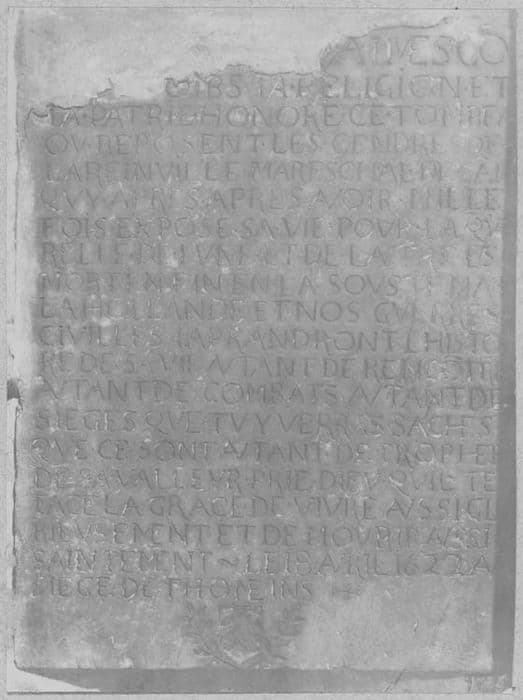 ADVESCO
DIBS TA·RELIGION·ET
TA·PATRIE·HONORE·CE·TOMBEA
OV·REPOSENT·LES·CENDRES DE
LAREINVILLE·MARESCHAL·DE·CA
QVY APRES APRES AVOIR MILLE
FOIS EXPOSE·SA·VIE·POVR·LA QV
RELLE·DE LVNE·ET·DE LA
MORT ENFIN EN LA SOVSTENA
LA HOLLANDE ET NOS GVERRES
CIVILLES TAPRANDRONT LHISTO
RE DE SA VIE AVTANT DE RENCONTR
AVTANT DE COMBATS AVTANT DE
SIEGES QVE TV Y VERRAS SACHES
QVE CE SONT AVTANT DE TROPHE
DE SA VALLEVR PRIE DIEV QVIL TE
FACE LA GRACE DE VIVRE AVSSI GL
RIEVSEMENT ET DE MOVRIR AVSSI
SAINTEMENT ~ LE 18 A RIL 1622 A
SIEGE DE THONEINS